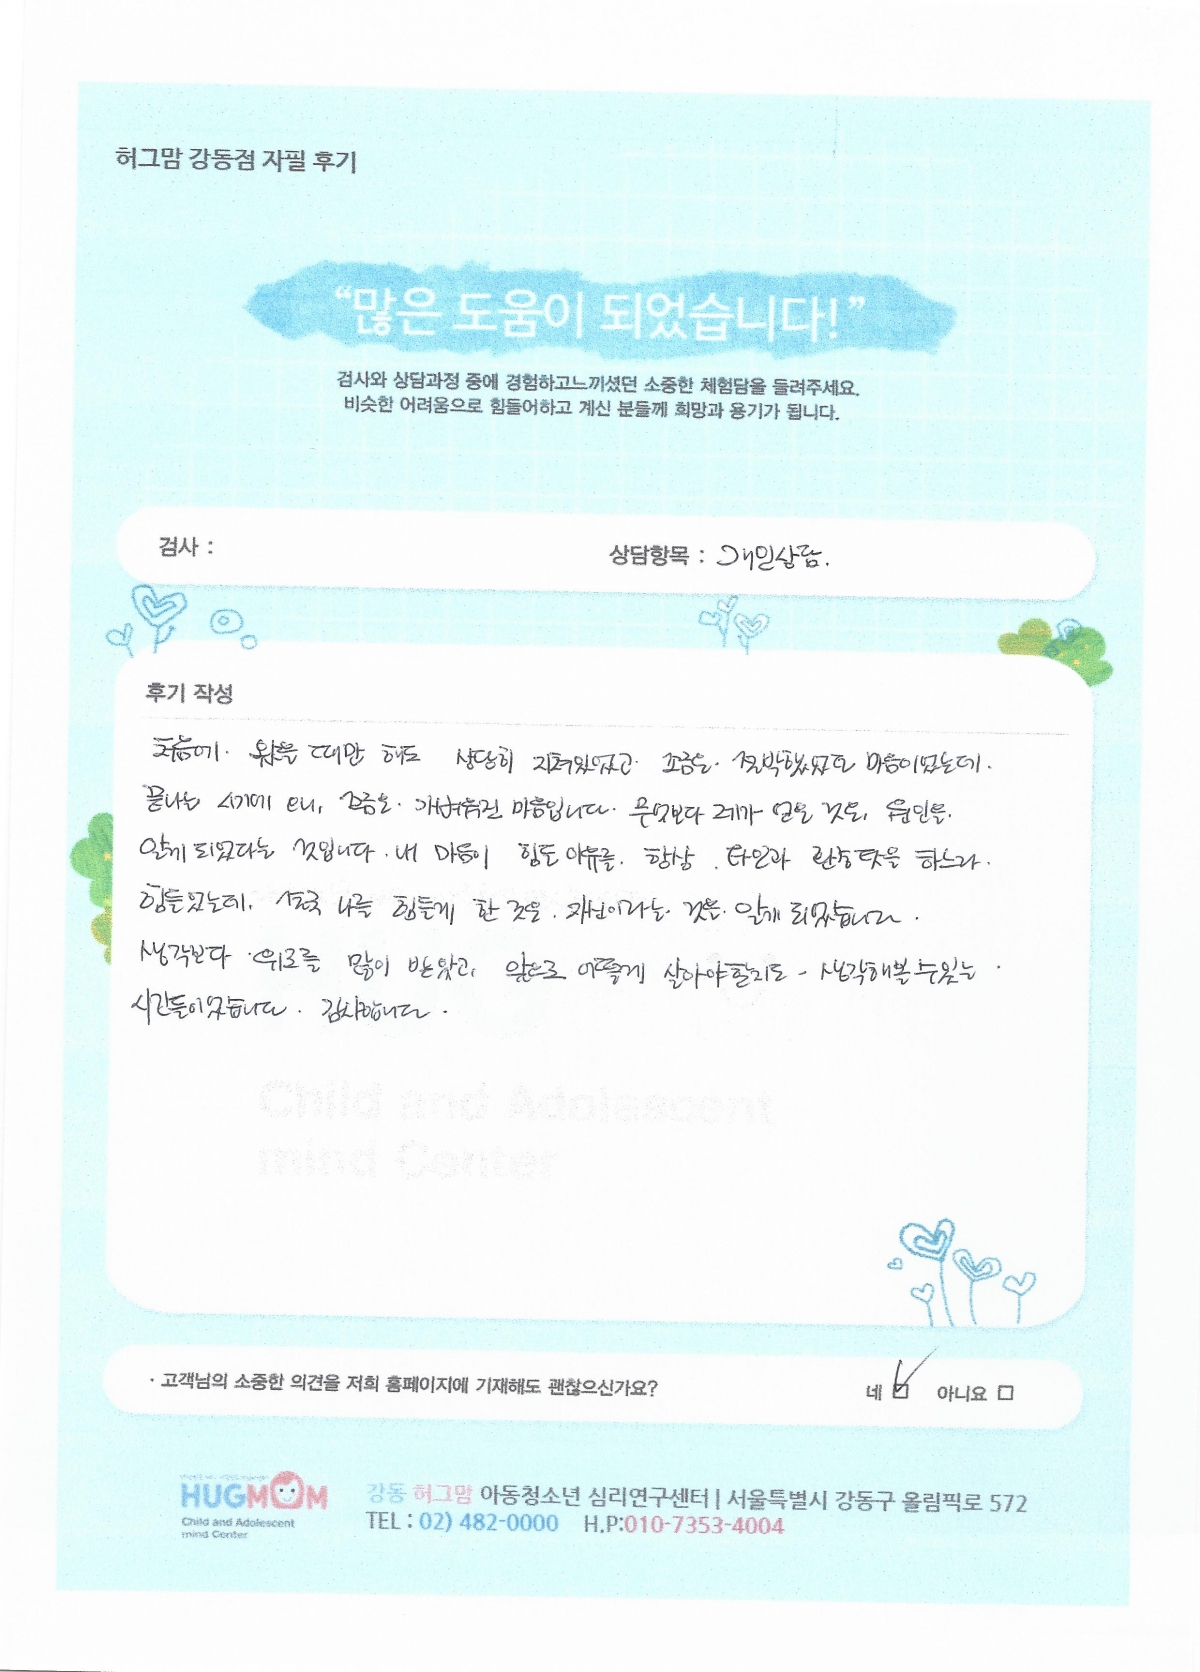 허그맘 강동점 자필 후기
“많은 도움이 되었습니다!”
검사와 상담과정 중에 경험하고느끼셨던 소중한 체험담을 들려주세요.
비슷한 어려움으로 힘들어하고 계신 분들께 희망과 용기가 됩니다.
검사 :
상담항목 : 개인상담.
후기 작성
처음에. 왔을 때만 해도 상당히 지쳐있었고 조금은. 절박했었던 마음이었는데.
끝나는 시기에 오니, 조금은. 가벼워진 마음입니다. 무엇보다 제가 얻은 것은, 원인을.
알게 되었다는 것입니다. 내 마음이 힘든 이유를. 항상. 타인과 환경탓을 하느라.
힘들었는데. 결국 나를 힘들게 한 것은. 자신이라는. 것을. 알게 되었습니다.
생각보다. 위로를 많이 받았고, 앞으로 어떻게 살아야할지도 - 생각해볼 수있는.
시간들이었습니다. 감사합니다.
Child and Adolescent
mind Center
· 고객님의 소중한 의견을 저희 홈페이지에 기재해도 괜찮으신가요?
네 ☑ 아니요 □
HUGMOM
Child and Adolescent
mind Center
강동 허그맘 아동청소년 심리연구센터 | 서울특별시 강동구 올림픽로 572
TEL : 02) 482-0000 H.P:010-7353-4004